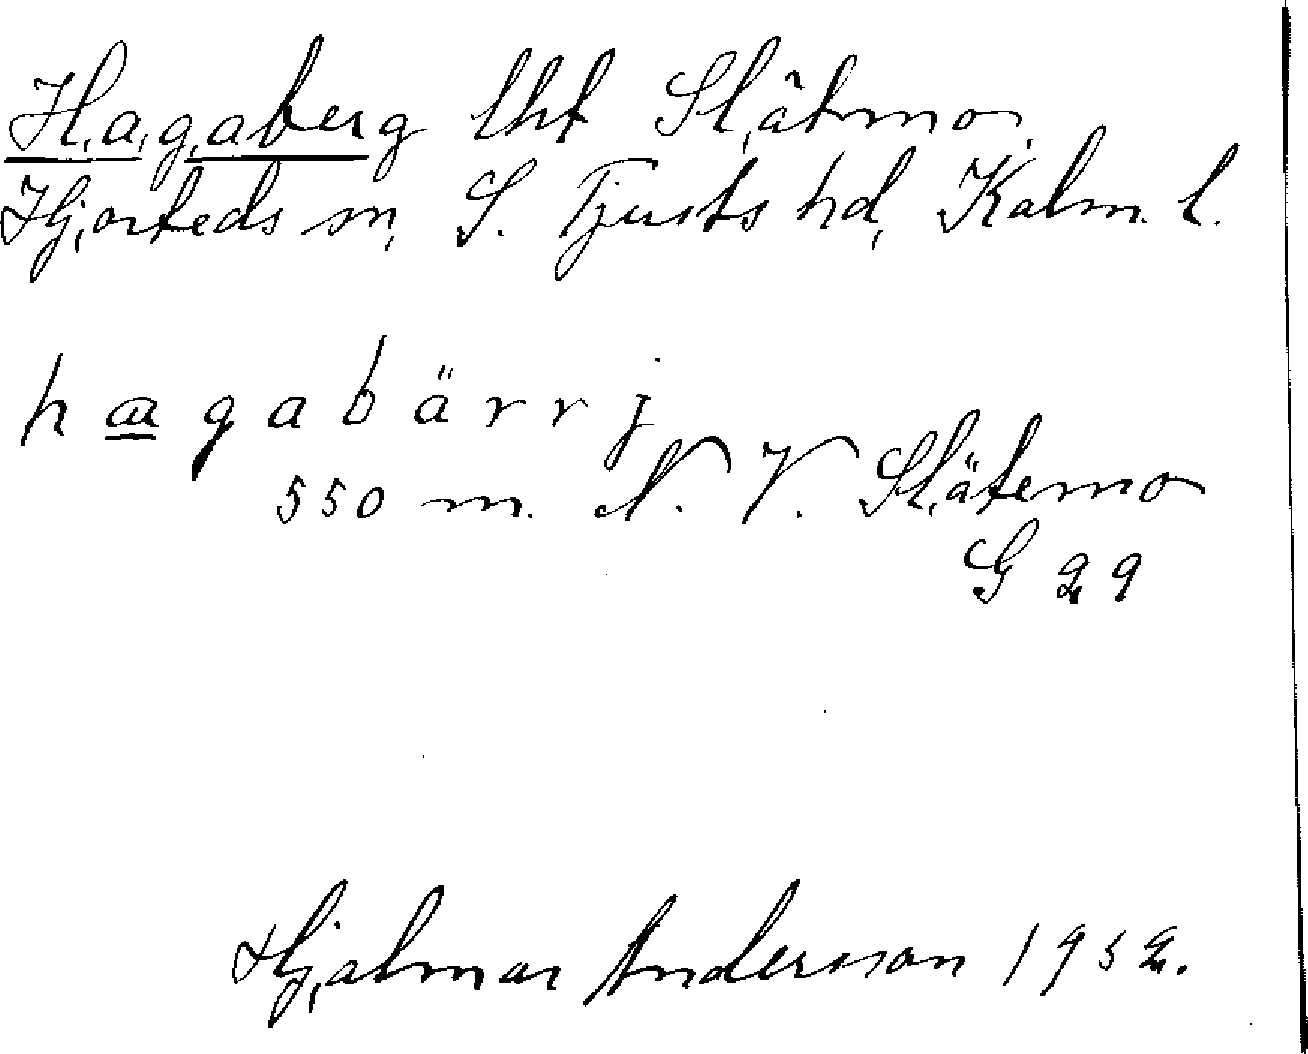 Hagaberg lht Slätmo
Hjorteds sn, S. Tjusts hd, Kalm. l.
hagabärrj
550 m. N. V. Slätemo
G 29
Hjalmar Andersson 1952.